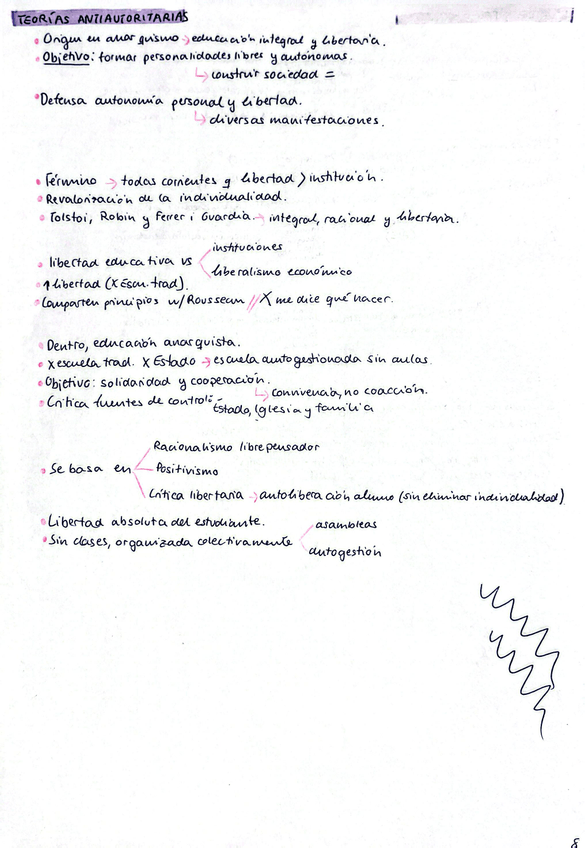 TEORÍAS ANTIAUTORITARIAS
• Origen en anarquismo → educación integral y libertaria.
• Objetivo: formar personalidades libres y autónomas.
↳ construir sociedad =
• Defensa autonomía personal y libertad.
↳ diversas manifestaciones.
• Término → todas corrientes q libertad > institución.
• Revalorización de la individualidad.
• Tolstoi, Robin y Ferrer i Guardia → integral, racional y libertaria.
instituciones
• libertad educativa vs
liberalismo económico
• ↑ libertad (X Escu. trad).
• Comparten principios w/ Rousseau // X me dice qué hacer.
• Dentro, educación anarquista.
• X escuela trad. X Estado → escuela autogestionada sin aulas.
• Objetivo: solidaridad y cooperación.
↳ convivencia, no coacción.
• Crítica fuentes de control: Estado, Iglesia y familia
Racionalismo librepensador
• Se basa en Positivismo
Crítica libertaria → autoliberación alumno (sin eliminar individualidad).
• Libertad absoluta del estudiante.
asambleas
• Sin clases, organizada colectivamente
autogestión
8